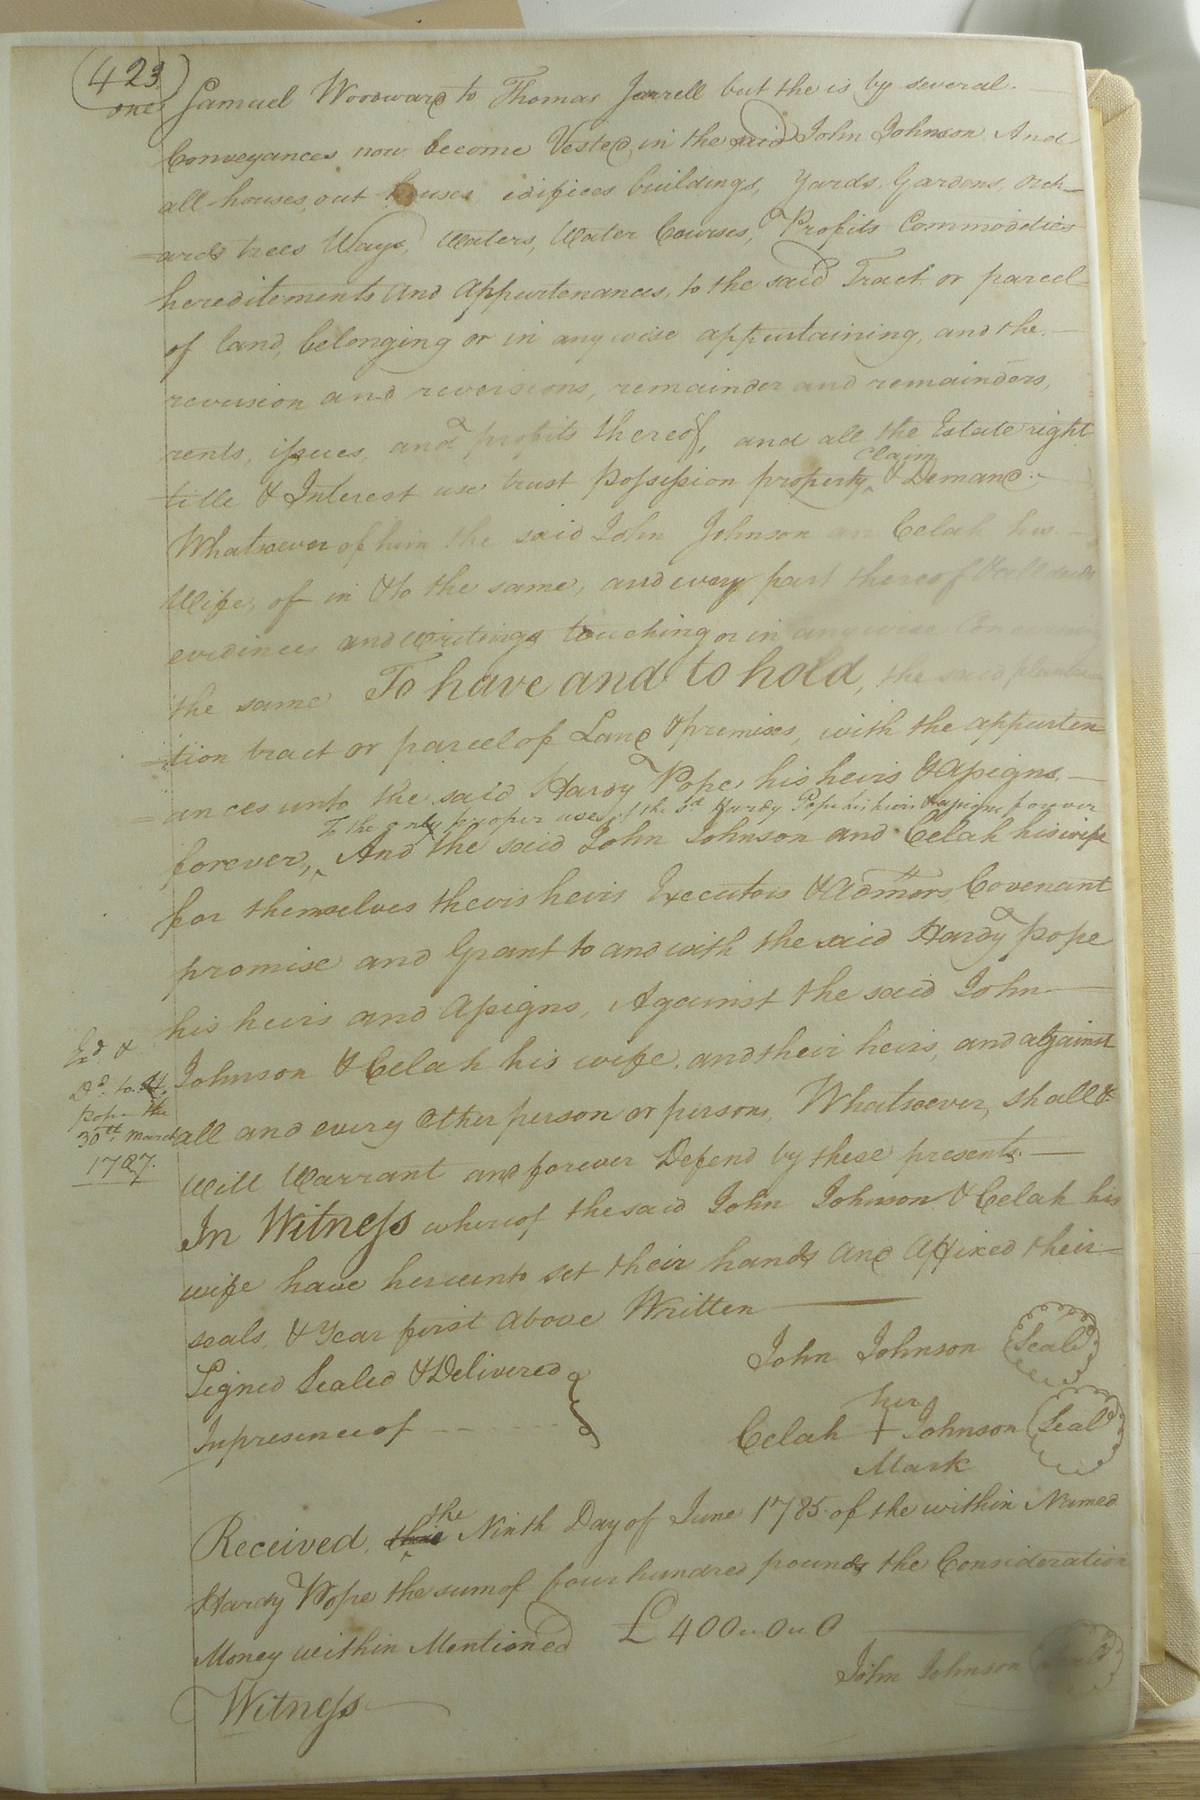 423
one Samuel Woodward to Thomas Jarrell but the is by several
Conveyances now become Vested in the said John Johnson And
all houses, out houses edifices buildings, Yards, Gardens, Orch-
=ards trees Ways, Waters, Water Courses, Profits Commodities
hereditements and Appurtenances, to the said Tract or parcel
of land, belonging or in any wise appurtaining, and the
revesion and reversions, remainder and remainders,
rents, issues, and profits thereof, and all the Estate right
claim
title & Interest use trust Possession property ^ & Demand
Whatsoever of him the said John Johnson an Celah his
Wife, of in & to the same, and every part thereof & all deeds
evidences and writings touching or in any wise Concerning
the same To have and to hold, the said planta
=tion tract or parcel of Land & premises, with the appurten
ances unto the said Hardy Pope, his heirs & Assigns
To the only proper use of the sd. Hardy Pope his heirs & assigns forever
forever, ^ And the said John Johnson and Celah his wife
for themselves theirs heirs Executors & Admors, Covenant
promise and Grant to and with the said Hardy Pope
his heirs and Assigns, Against the said John
Johnson & Celah his wife, and their heirs, and against
all and every Other person or persons, Whatsoever, shall &
Will Warrant and forever Defend by these presents.
Exd. &
Dd. to H.
Pope the
30th. March
1787.
In Witness whereof the said John Johnson & Celah his
wife have hereunto set their hands and Affixed their
seals, & Year first above Written
Signed Sealed & Delivered
In presence of
John Johnson Seal
her
Celah + Johnson Seal
Mark
the
Received, this ^ Ninth Day of June 1785 of the within Named
Hardy Pope the sum of four hundred pounds the Consideration
Money within Mentioned £400..0..0
John Johnson Seal
Witness